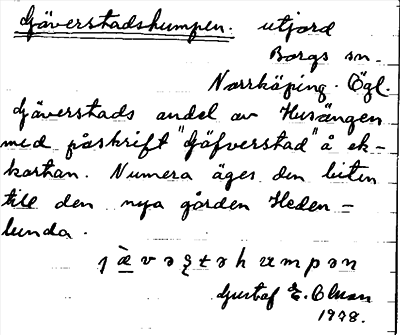 Gjäverstadshumpen. utjord
Borgs sn.
Norrköping. Ögl.
Gjäverstads andel av Husängen
med påskrift "Gjäfverstad" å ek-
kartan. Numera äges den biten
till den nya gården Heden=
lunda.
Gustaf E. Olsson
1978.